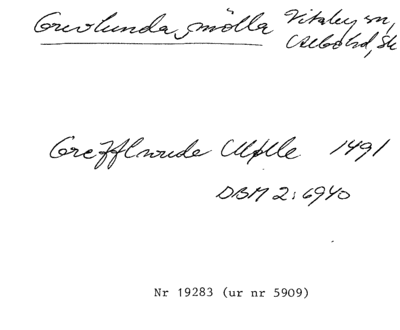 Grevlunda, mölla Vitaby sn,
Albo hd, Sk
Grefflwnde Mølle 1491
DBM 2:6940
Nr 19283 (ur nr 5909)